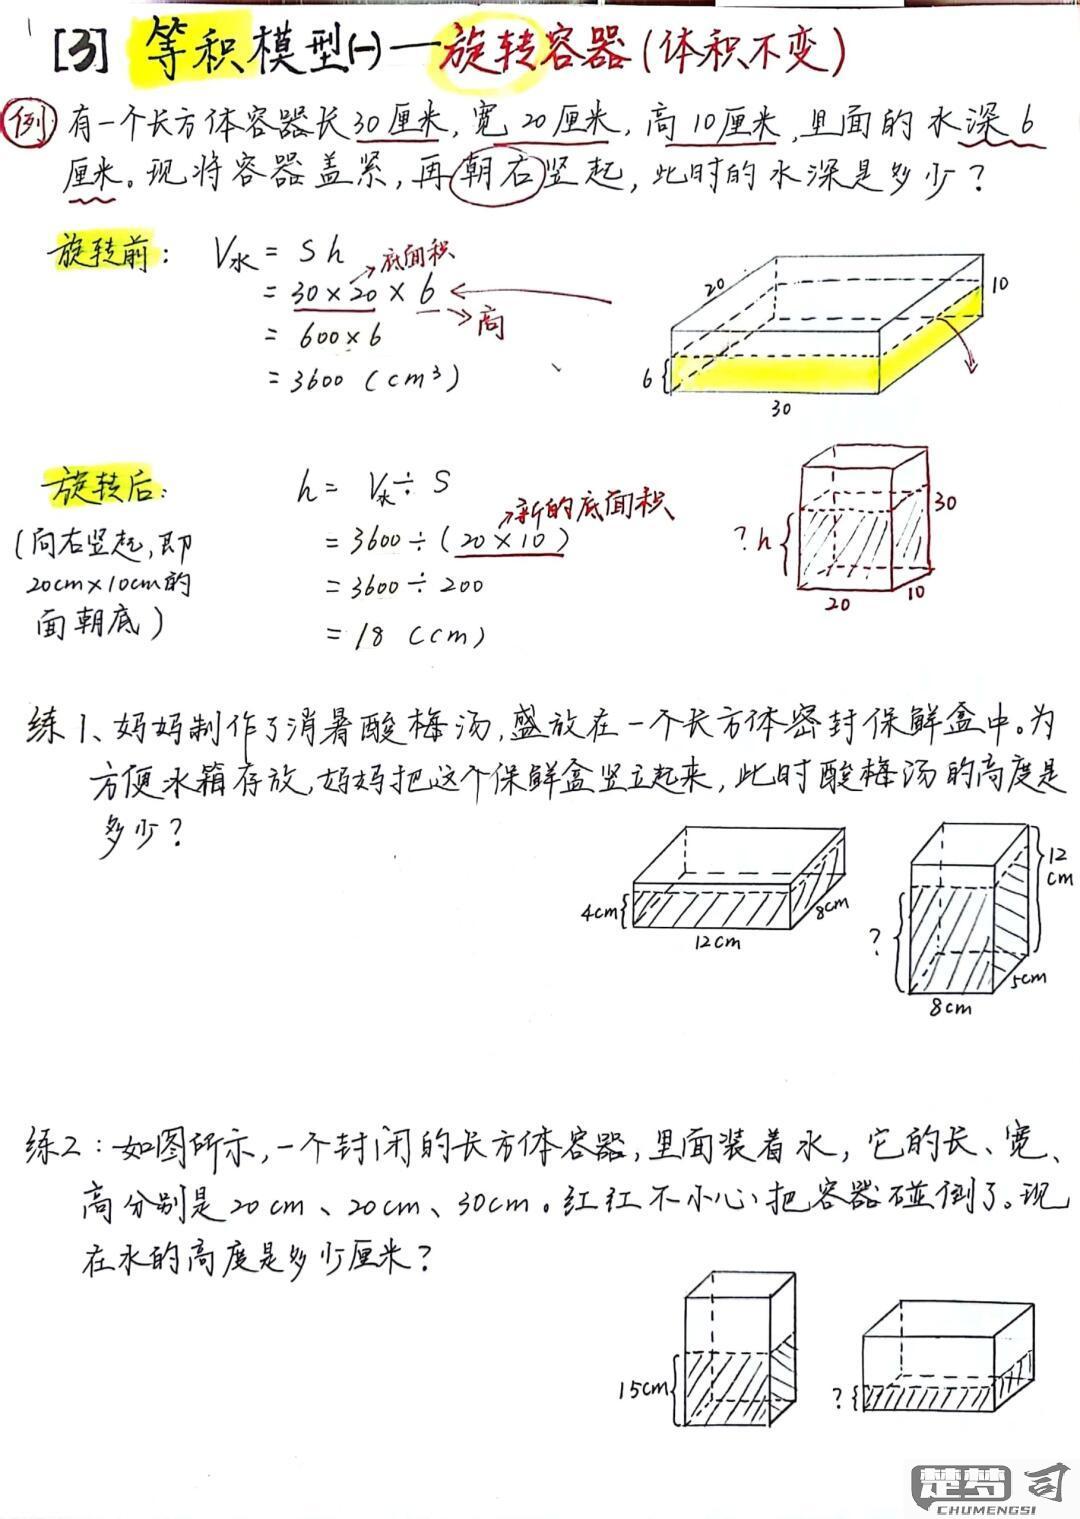 [3] 等积模型(一)—旋转容器(体积不变)
例 有一个长方体容器长30厘米,宽20厘米,高10厘米,里面的水深6
厘米。现将容器盖紧,再朝右竖起,此时的水深是多少?
旋转前: V水 = S h
底面积
= 30×20×6
高
= 600×6
= 3600 (cm³)
20
10
6
30
旋转后:
(向右竖起,即
20cm×10cm的
面朝底)
h = V水÷S
新的底面积
= 3600÷(20×10)
= 3600÷200
= 18 (cm)
30
?h
20
10
练1、妈妈制作了消暑酸梅汤,盛放在一个长方体密封保鲜盒中。为
方便冰箱存放,妈妈把这个保鲜盒竖立起来,此时酸梅汤的高度是
多少?
4cm
12cm
8cm
12
cm
?
5cm
8cm
练2:如图所示,一个封闭的长方体容器,里面装着水,它的长、宽、
高分别是20cm、20cm、30cm。红红不小心把容器碰倒了。现
在水的高度是多少厘米?
15cm
?
楚梦司
CHUMENGSI